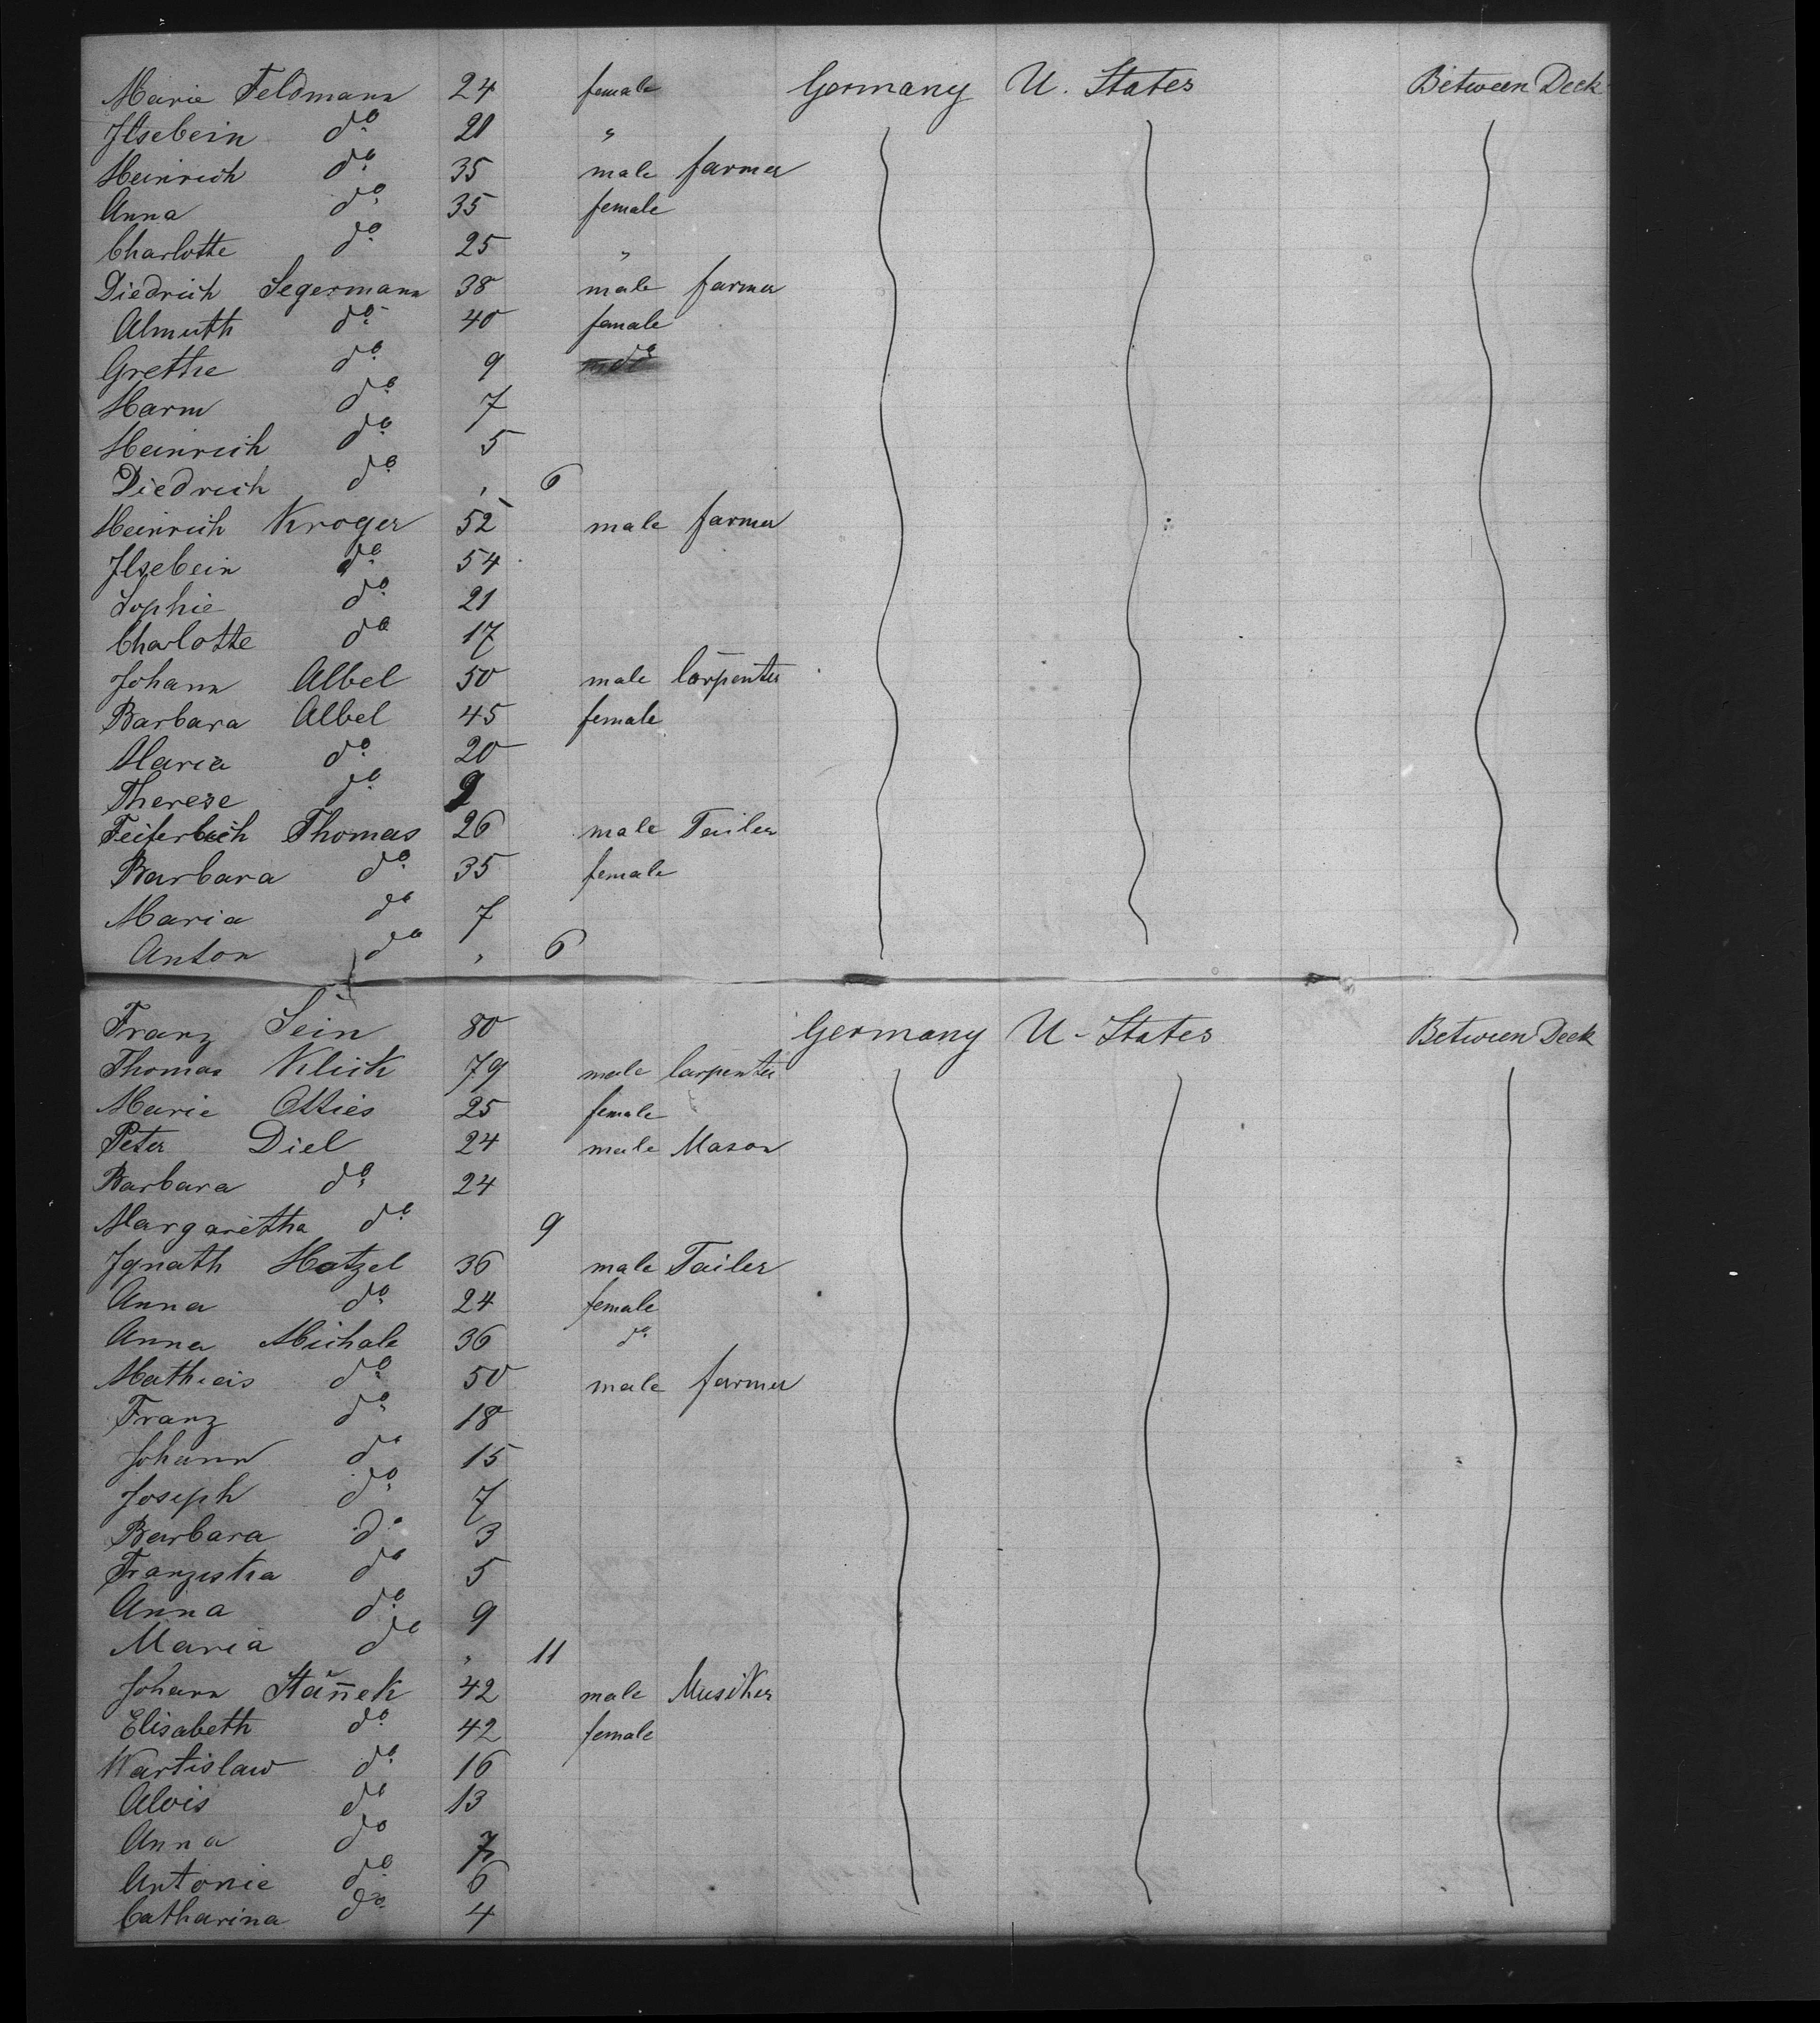 Marie Feldmann 24 female Germany U. States Between Deck
Ilsebein do 21 "
Heinrich do 35 male farmer
Anna do 35 female
Charlotte do 25 "
Diedrich Segermann 38 male farmer
Almuth do 40 female
Grethe do 9 do
Harm do 7
Heinrich do 5
Diedrich do , 6
Heinrich Kroger 52 male farmer
Ilsebein do 54
Sophie do 21
Charlotte do 17
Johann Albel 50 male Carpenter
Barbara Albel 45 female
Maria do 20
Therese do 9
Feiferlich Thomas 26 male Tailer
Barbara do 35 female
Maria do 7
Anton do , 6
Franz Sein 80 Germany U. States Between Deck
Thomas Klick 79 male Carpenter
Marie Otties 25 female
Peter Diel 24 male Mason
Barbara do 24
Margaretha do 9
Ignath Hatzel 36 male Tailer
Anna do 24 female
Anna Michale 36 do
Mathieis do 50 male farmer
Franz do 18
Johann do 15
Joseph do 7
Barbara do 3
Franziska do 5
Anna do 9
Maria do " 11
Johann Stañek 42 male Musiker
Elisabeth do 42 female
Wartislaw do 16
Alois do 13
Anna do 7
Antonie do 6
Catharina do 4